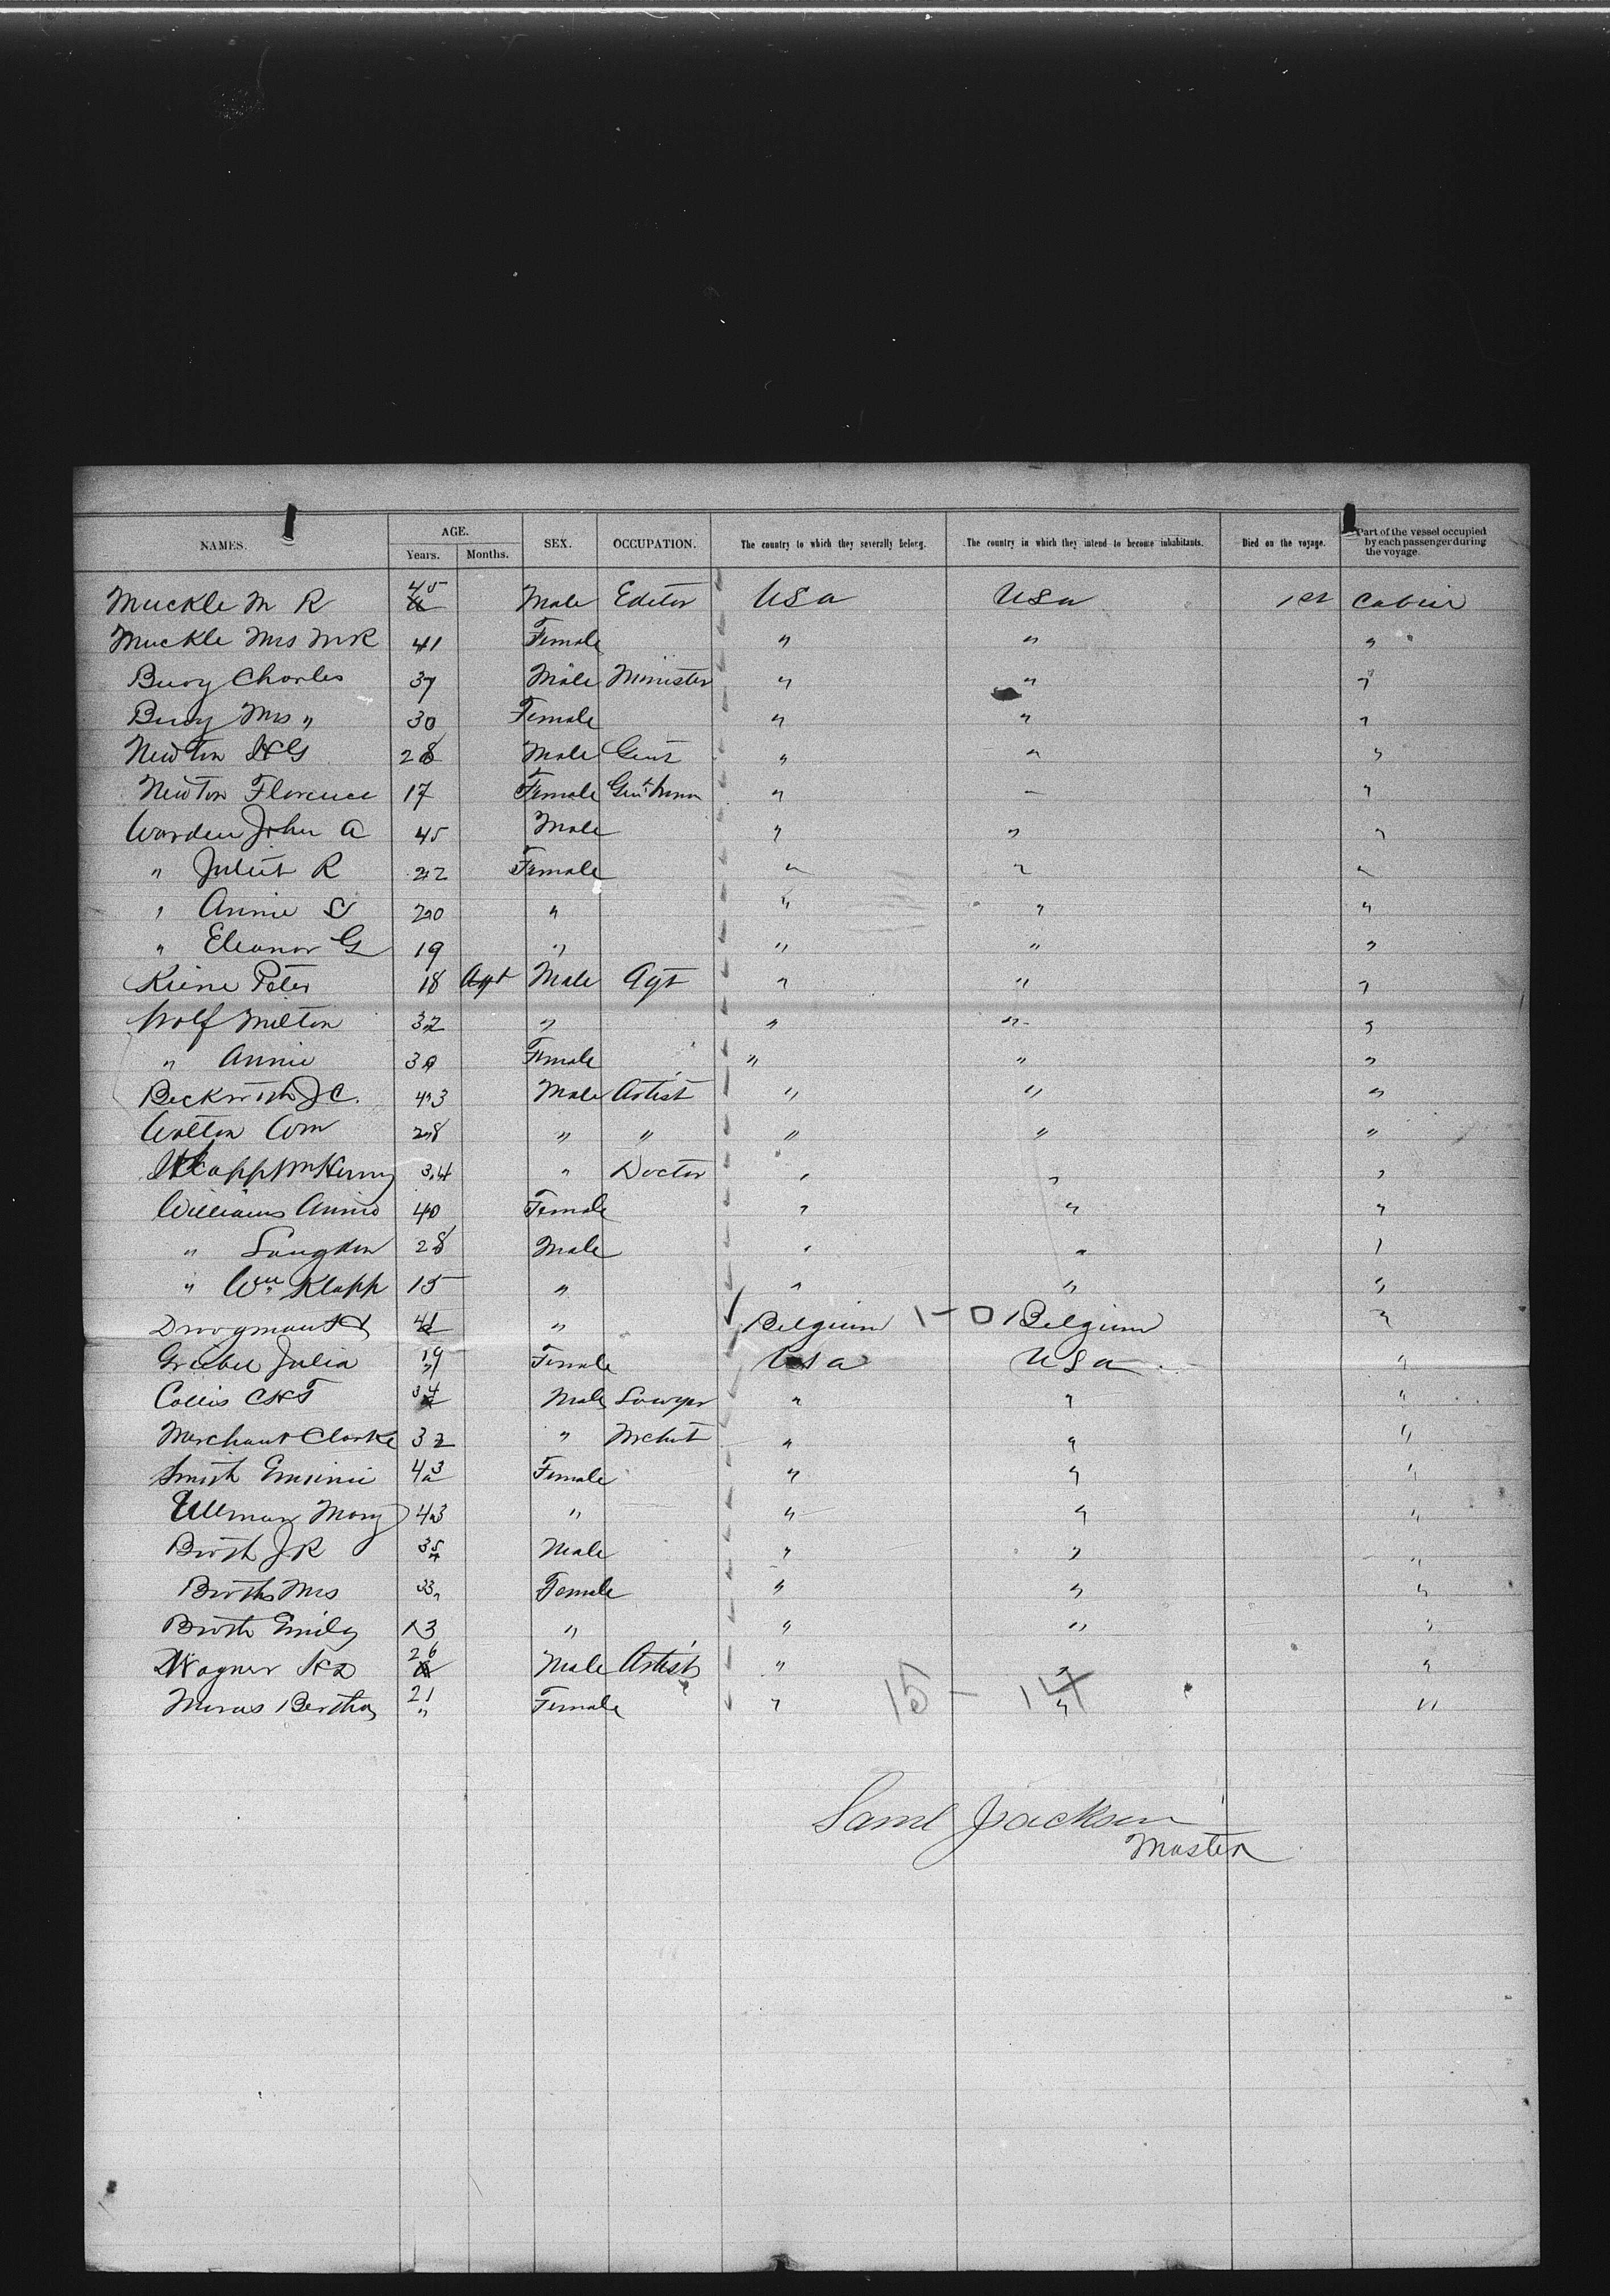 NAMES. AGE. SEX. OCCUPATION. The country to which they severally belong. The country in which they intend to become inhabitants. Died on the voyage. Part of the vessel occupied by each passenger during the voyage.
Years. Months.
Muckle M R 45 Male Editor USa USa 1st Cabin
Muckle Mrs M R 41 Female " " "
Buoy Charles 37 Male Minister " " "
Buoy Mrs " 30 Female " " "
Newton H G 28 Male Gent " " "
Newton Florence 17 Female " "
Worden John A 45 Male " " "
" Juliet R 22 Female " " "
" Annie S 20 " " " "
" Eleanor G 19 " " " "
Keine Peter 18 Agt Male Agt " " "
Wolf Milton 32 " " " "
" Annie 30 Female " " "
Beckwith J C. 43 Male Artist " " "
Walton Wm 28 " " " " "
Klapp Wm Henry 34 " Doctor " " "
Williams Annie 40 Female " " "
" Langdon 28 Male " " "
" Wm Klapp 15 " " " "
41 " Belgium 1-0 Belgium "
Julia 19 Female USa USa "
Collis C H T 34 Male Lawyer " " "
Merchant Clarke 32 " Mcht " " "
Smith 43 Female " " "
Ullman Mary 43 " " " "
Booth J R 35 Male " " "
Booth Mrs 33 Female " " "
Booth Emily 13 " " " "
Wagner 26 Male Artist " " "
Bertha 21 Female " 15 - 14 " "
Saml Jackson
Master